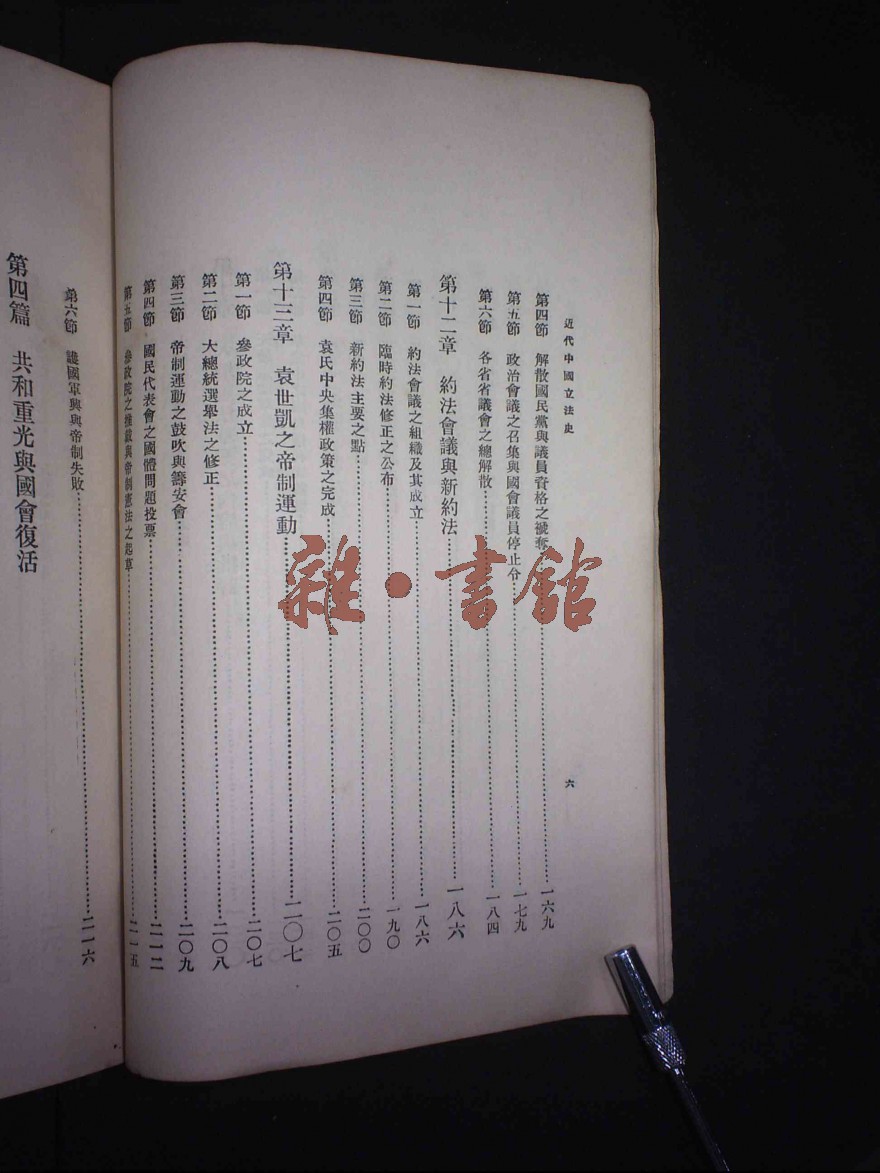 近代中國立法史
六
第四節 解散國民黨與議員資格之褫奪……一六九
第五節 政治會議之召集與國會議員停止令……一七九
第六節 各省省議會之總解散……一八四
第十二章 約法會議與新約法……一八六
第一節 約法會議之組織及其成立……一八六
第二節 臨時約法修正之公布……一九〇
第三節 新約法主要之點……二〇〇
第四節 袁氏中央集權政策之完成……二〇五
第十三章 袁世凱之帝制運動……二〇七
第一節 參政院之成立……二〇七
第二節 大總統選舉法之修正……二〇八
第三節 帝制運動之鼓吹與籌安會……二〇九
第四節 國民代表會之國體問題投票……二一二
第五節 參政院之推戴與帝制憲法之起草……二一五
第六節 護國軍興與帝制失敗……二一六
第四篇 共和重光與國會復活
雜·書館